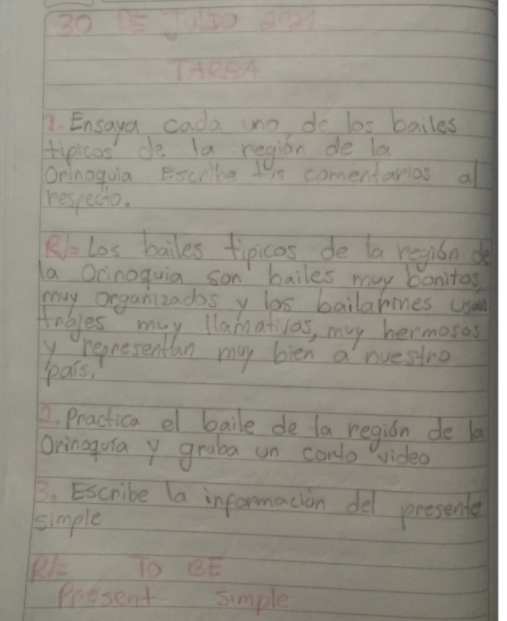 30 DE JULIO 2021
TAREA
1. Ensaya cada uno de los bailes
tipicos de la región de la
Orinoquia Escribe tus comentarios al
respecto.
R/= Los bailes tipicos de la región de
la Orinoquia son bailes muy bonitos,
muy organizados y los bailarines usan
trajes muy llamativos, muy hermosos
y representan muy bien a nuestro
país.
2. Practica el baile de la región de la
Orinoquía y graba un corto video
3. Escribe la información del presente
simple
R/= TO BE
Present simple